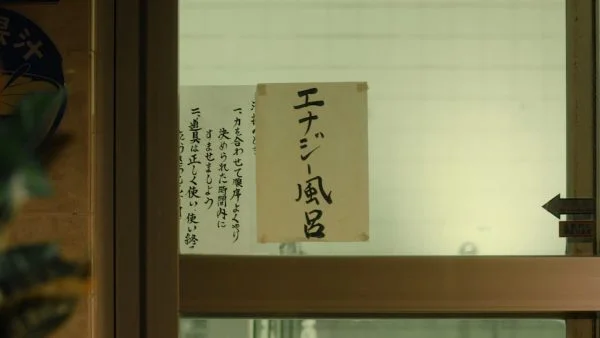 エナジー風呂
一、力を合わせて順序よくやり
決められた時間内に
すませましょう
二、道具は正しく使い、使い終